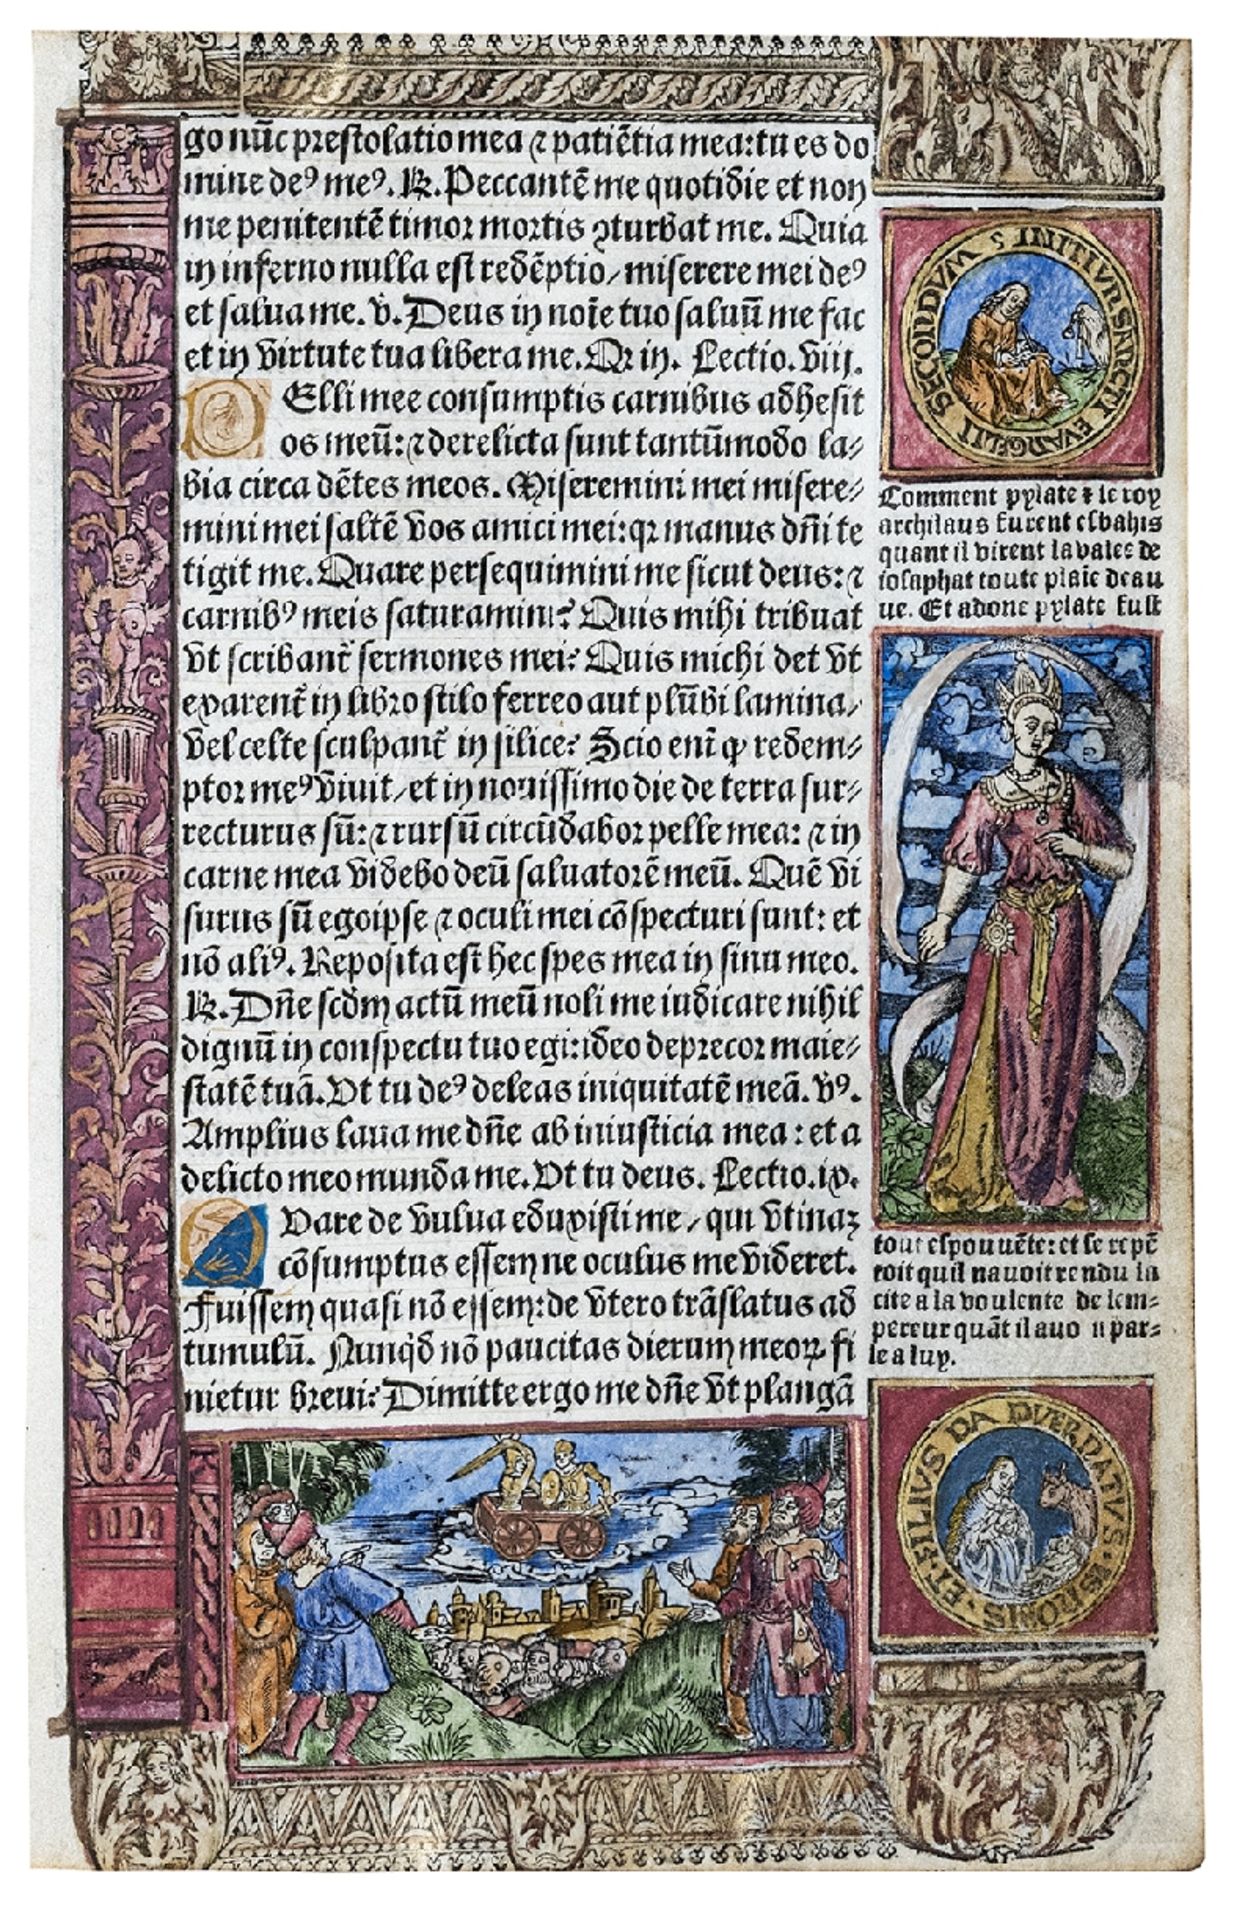 go nūc prestolatio mea ⁊ patiētia mea: tu es do
mine deꝰ meꝰ. ℟. Peccantē me quotidie et non
me penitentē timor mortis ꝯturbat me. Quia
in inferno nulla est redēptio/ miserere mei deꝰ
et salua me. v̇. Deus in noīe tuo saluū me fac
et in virtute tua libera me. Qr in. Lectio. viij.
PElli mee consumptis carnibus adhesit
os meū: ⁊ derelicta sunt tantūmodo la/
bia circa dētes meos. Miseremini mei misere/
mini mei saltē vos amici mei: qꝛ manus dn̄i te
tigit me. Quare persequimini me sicut deus: ⁊
carnibꝰ meis saturamini? Quis mihi tribuat
vt scribant̄ sermones mei? Quis michi det vt
exarent̄ in libro stilo ferreo aut plūbi lamina/
vel celte sculpant̄ in silice? Scio eni ꝙ redem/
ptor meꝰ viuit/ et in nouissimo die de terra sur/
recturus sū: ⁊ rursū circūdabor pelle mea: ⁊ in
carne mea videbo deū saluatorē meū. Quē vi
surus sū ego ipse ⁊ oculi mei cōspecturi sunt: et
nō aliꝰ. Reposita est hec spes mea in sinu meo.
℟. Dn̄e scdm actū meū noli me iudicare nihil
dignū in conspectu tuo egi: ideo deprecor maie/
statē tuā. Vt tu deꝰ deleas iniquitatē meā. vꝰ.
Amplius laua me dn̄e ab iniusticia mea: et a
delicto meo munda me. Vt tu deus. Lectio. ix.
QVare de vulua eduxisti me/ qui vtinaꝫ
cōsumptus essem ne oculus me videret.
Fuissem quasi nō essem: de vtero trāslatus ad
tumulū. Nunqd̄ nō paucitas dierum meoꝝ fi
nietur breui? Dimitte ergo me dn̄e vt plangā
INITIVM SANCTI EVANGELII SECONDVM
Comment pylate ⁊ le roy
archilaus furent esbahis
quant il virent la valee de
iosaphat toute plaie deau
ue. Et adonc pylate fust
tout espouuēte: et se repē
toit quil nauoit rendu la
cite a la voulente de lem/
pereur quāt il auo it par/
le a luy.
PVER NATVS IS NOBIS ET FILIVS DA